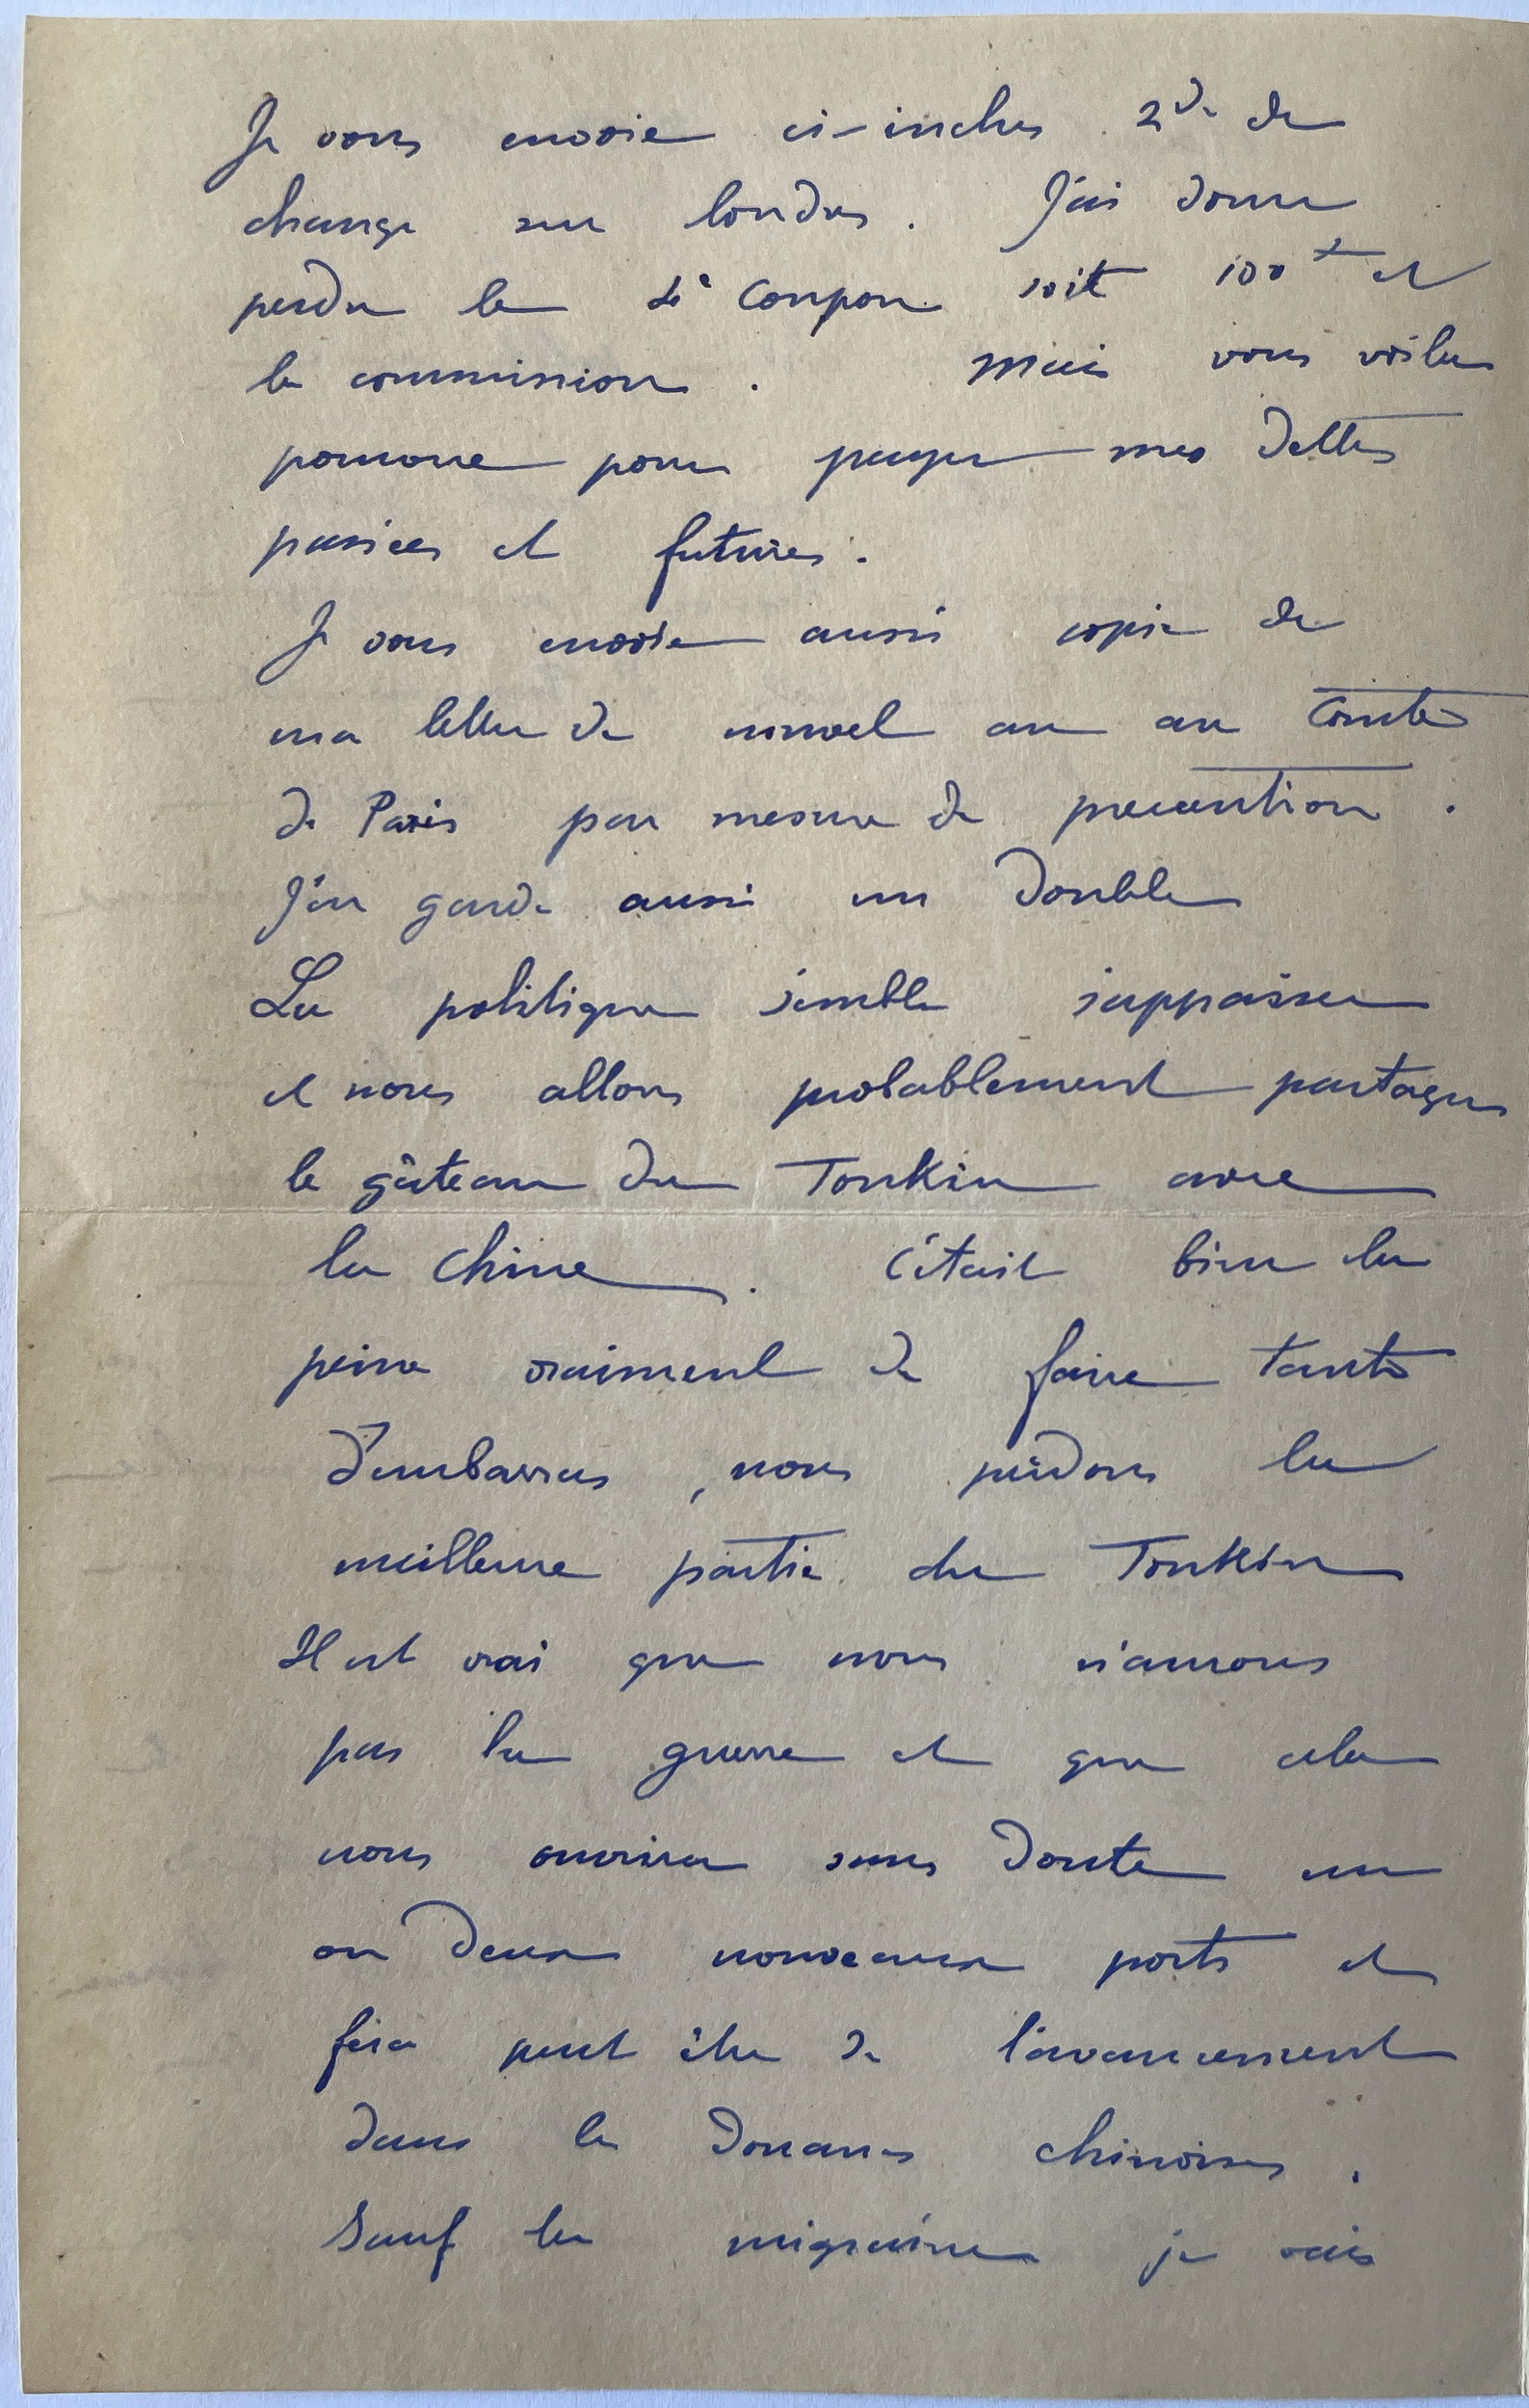 Je vous envoie ci-inclus 2de de
change sur londres. J'ai donc
perdu le coupon soit 100 et
la commission. Mais vous voila
pourvue pour payer mes dettes
passées et futures.
Je vous envoie aussi copie de
ma lettre de nouvel an au Comte
de Paris par mesure de precaution.
J'en garde aussi un double
La politique semble s'appaiser
et nous allons probablement partager
le gâteau du Tonkin avec
la Chine. C'était bien la
peine vraiment de faire tant
d'embarras, nous perdons la
meilleure partie du Tonkin
Il est vrai que nous n'aurons
pas la guerre et que cela
nous ouvrira sans doute un
ou deux nouveaux ports et
fera peut être de l'avancement
dans les Douanes chinoises.
Sauf la migraine je vais